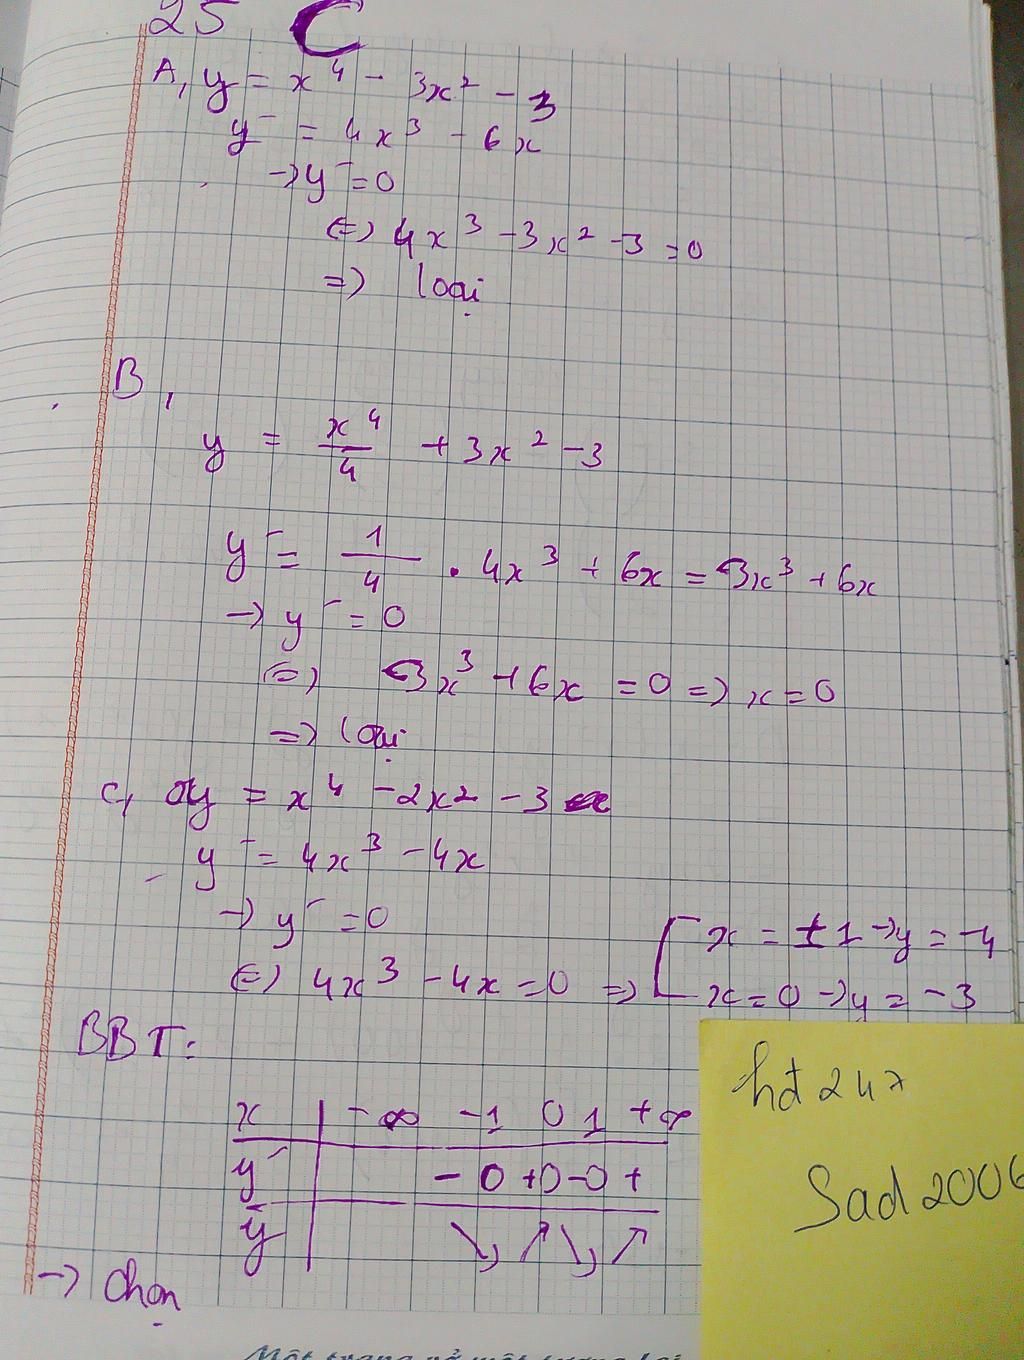 25 C
A, y = x⁴ - 3x² - 3
y⁻ = 4x³ - 6x
→ y⁻ = 0
⇔ 4x³ - 3x² - 3 = 0
=> loại
B,
y = x⁴/4 + 3x² - 3
y⁻ = 1/4 . 4x³ + 6x = 3x³ + 6x
→ y⁻ = 0
⇔ 3x³ + 6x = 0 => x = 0
=> loại
C, y = x⁴ - 2x² - 3
y⁻ = 4x³ - 4x
→ y⁻ = 0
⇔ 4x³ - 4x = 0 => [ x = ±1 → y = -4
x = 0 → y = -3
BBT:
x | -∞ -1 0 1 +∞
y⁻ | - 0 + 0 - 0 +
y | ↘ ↗ ↘ ↗
→ Chọn
hđ247
Sad2006